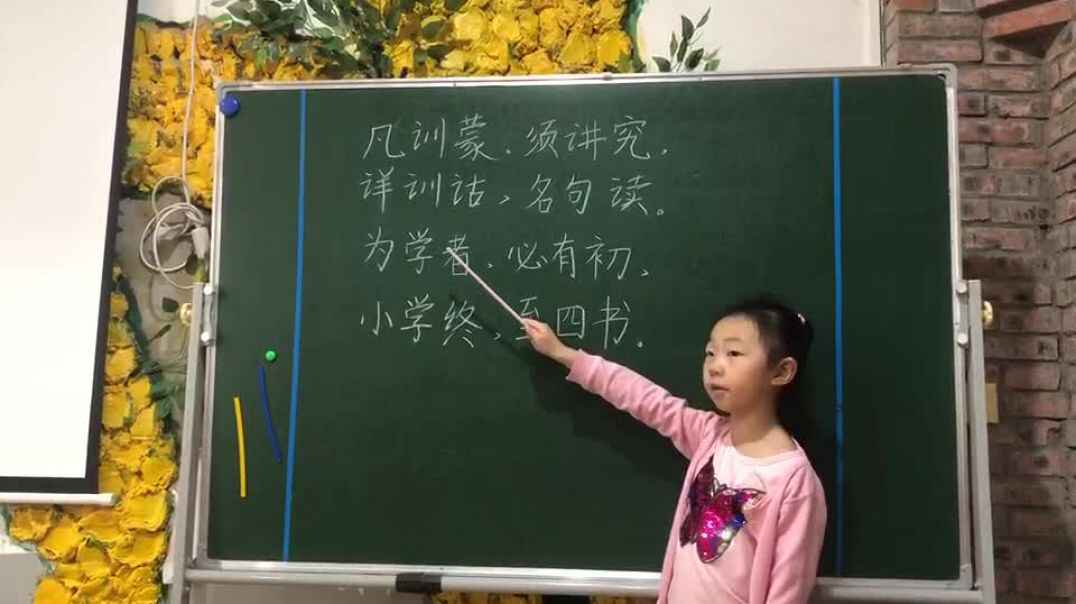 凡训蒙，须讲究，
详训诂，名句读。
为学者，必有初，
小学终，至四书。